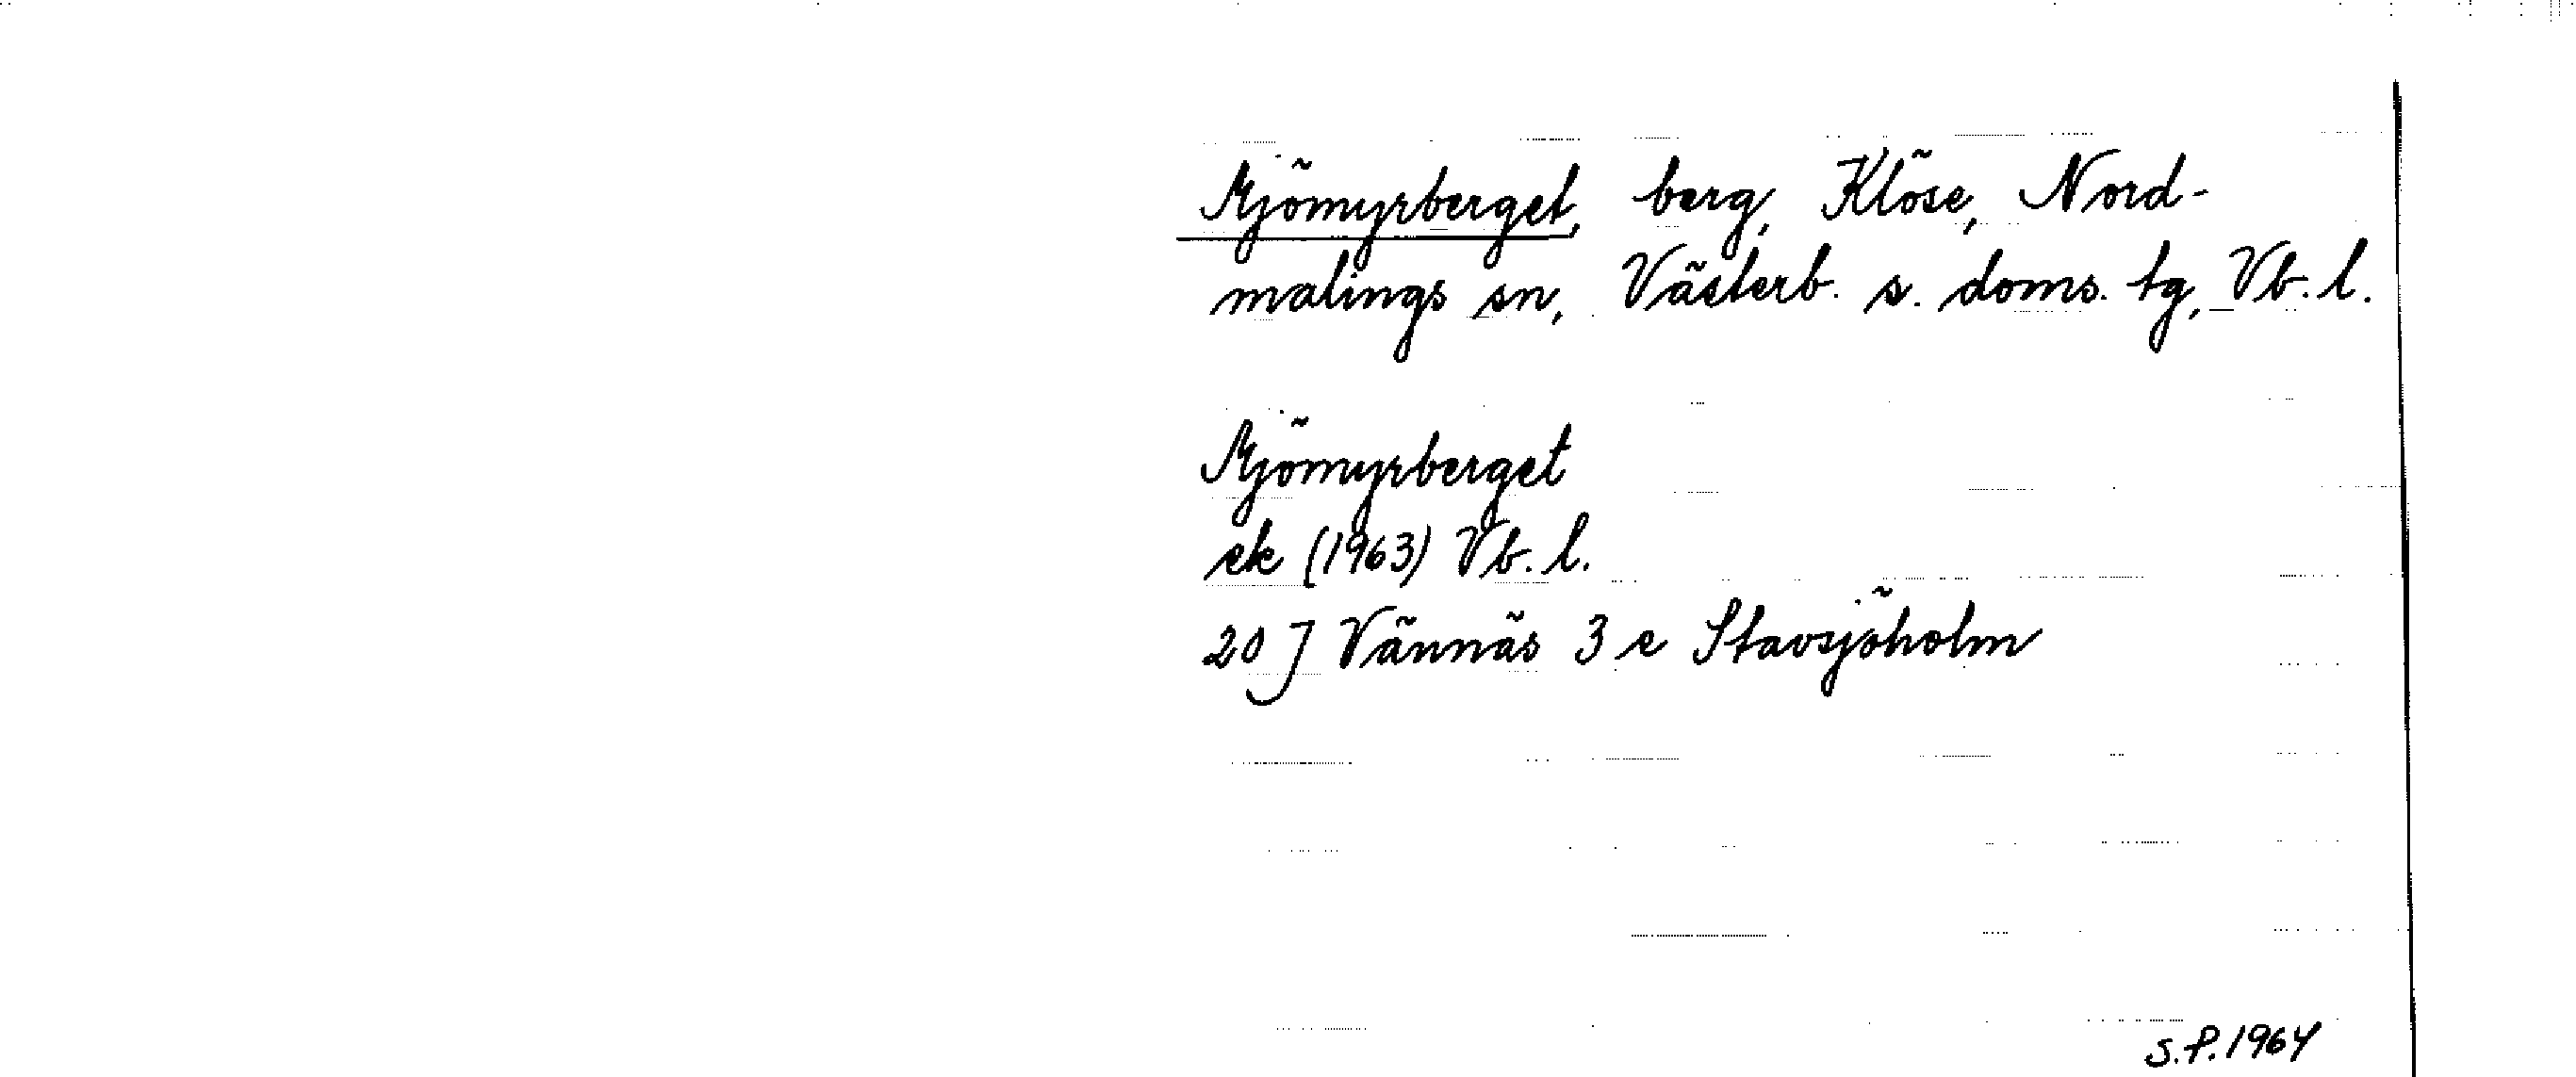 Mjömyrberget, berg, Klöse, Nord-
malings sn, Västerb. s. doms. tg, Vb. l.
Mjömyrberget
ek (1963) Vb. l.
20 J Vännäs 3 e Stavsjöholm
S.P. 1964